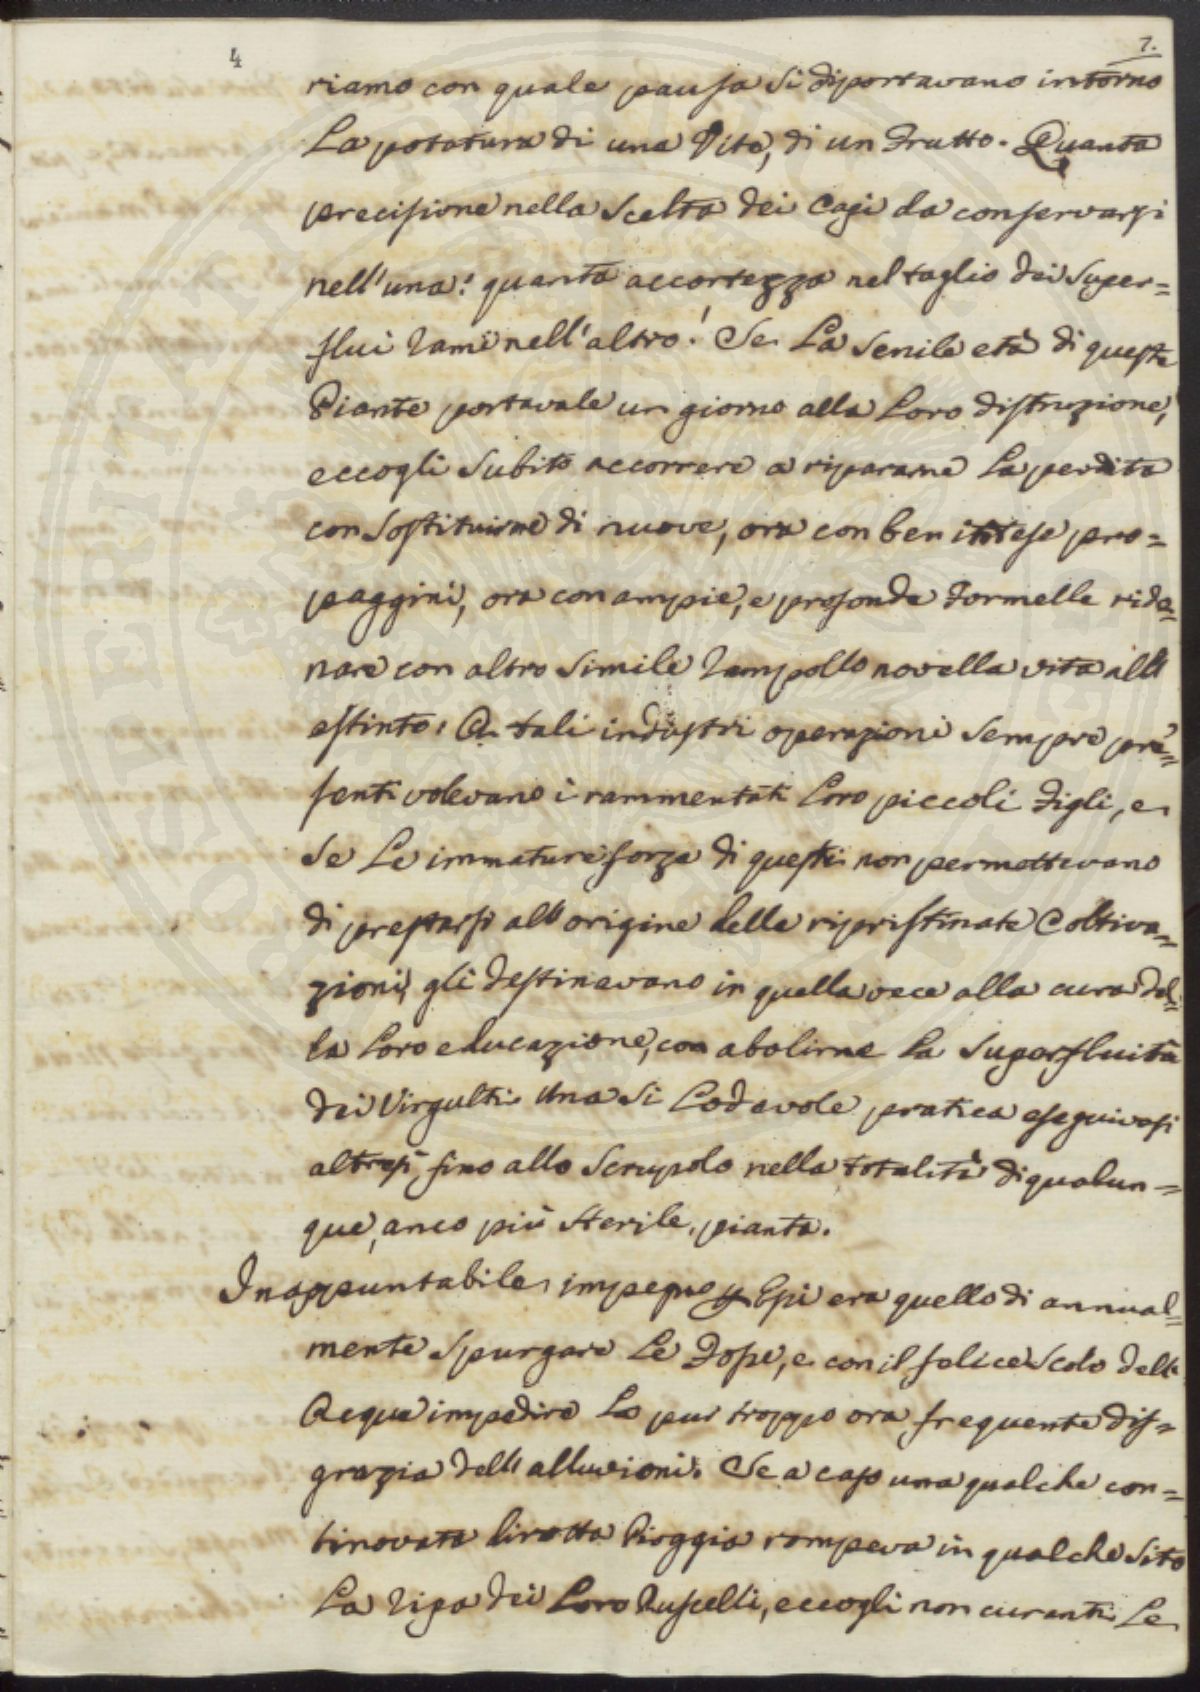 4
7.
riamo con quale pausa si diportavano intorno
La potatura di una Vite, di un Frutto. Quanta
precisione nella Scelta dei Capi da conservarsi
nell'una! quanta accortezza nel taglio dei Super=
flui rami nell'altro! Se La Senile età di queste
Piante portavale un giorno alla Loro distruzione,
eccogli Subito accorrere a ripararne La perdita
con Sostituirne di nuove, ora con ben intese pro=
paggini, ora con ampie, e profonde Formelle rido=
nare con altro Simile rampollo novella vita all'
estinto: A tali industri operazioni Sempre pre=
senti volevano i rammentati Loro piccoli Figli, e
Se Le immature forze di questi non permettevano
di prestarsi all'origine delle ripristinate Coltiva=
zioni, gli destinavano in quella vece alla cura del=
la Loro educazione, con abolirne La Superfluità
dei Virgulti. Una Sì Lodevole pratica eseguivasi
altresì fino allo Scrupolo nella totalità di qualun=
que, anco più Sterile, pianta.
Inappuntabile impegno p Essi era quello di annual=
mente Spurgare Le Fosse, e con il felice Scolo dell'
Acque impedire La pur troppo ora frequente dis=
grazia dell'alluvioni. Se a caso una qualche con=
tinovata dirotta Pioggia rompeva in qualche Sito
La ripa dei Loro Ruscelli, eccogli non curanti Le